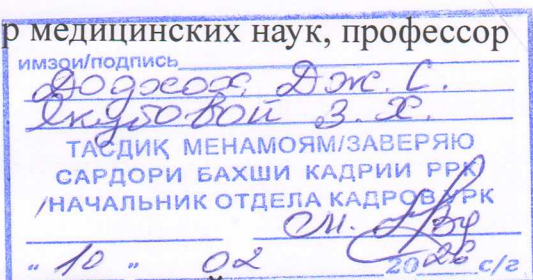 р медицинских наук, профессор
имзои/подпись
Додхох Дж. С.
Якубовой З. Х.
ТАСДИҚ МЕНАМОЯМ/ЗАВЕРЯЮ
САРДОРИ БАХШИ КАДРИИ РРК
/НАЧАЛЬНИК ОТДЕЛА КАДРОВ УРК
" 10 " 02 20 26 с/г